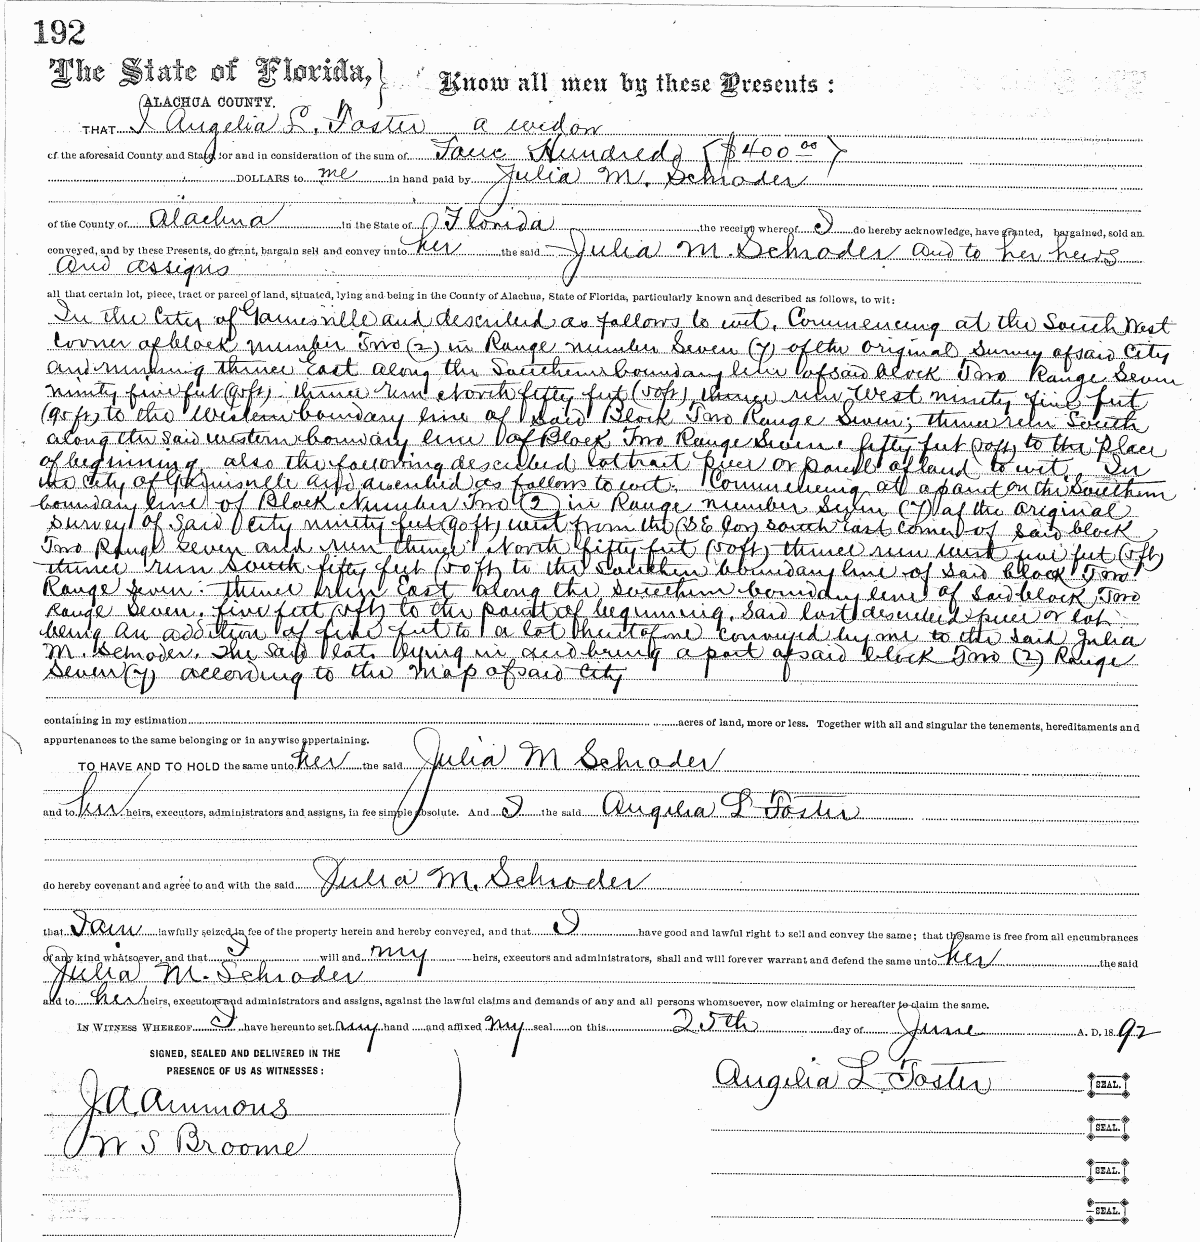 192
The State of Florida,} Know all men by these Presents:
ALACHUA COUNTY.
THAT I Angelia L. Foster a widow
of the aforesaid County and State for and in consideration of the sum of Four Hundred ($400.00)
DOLLARS to me in hand paid by Julia M. Schrader
of the County of Alachua In the State of Florida the receipt whereof I do hereby acknowledge, have granted, bargained, sold an
conveyed, and by these Presents, do grant, bargain sell and convey unto her the said Julia M. Schrader and to her heirs
and assigns
all that certain lot, piece, tract or parcel of land, situated, lying and being in the County of Alachua, State of Florida, particularly known and described as follows, to wit:
In the City of Gainesville and described as follows to wit. Commencing at the South West
Corner of block number Two (2) in Range number Seven (7) of the Original Survey of said City
and running thence East along the Southern boundary line of said block Two Range Seven
ninety five feet (95ft) thence run North fifty feet (50ft) thence run West ninety five feet
(95ft) to the Western boundary line of said Block Two Range Seven; thence run South
along the said western boundary line of Block Two Range Seven fifty feet (50ft) to the Place
of beginning. also the following described lot tract piece or parcel of land to wit. In
the City of Gainesville and described as follows to wit: Commencing at a point on the Southern
boundary line of Block Number Two (2) in Range number Seven (7) of the Original
Survey of said City ninety feet (90ft) west from the (SE Cor) South east corner of said block
Two Range Seven and run thence North fifty feet (50ft) thence run west five feet (5ft)
thence run South fifty feet (50ft) to the Southern boundary line of said block Two
Range Seven: thence run East along the Southern boundary line of said block Two
Range Seven. five feet (5ft) to the point of beginning. Said last described piece or lot
being an addition of five feet to a lot heretofore conveyed by me to the said Julia
M. Schrader. The said lot lying in and being a part of said block Two (2) Range
Seven (7) according to the map of said City
containing in my estimation acres of land, more or less. Together with all and singular the tenements, hereditaments and
appurtenances to the same belonging or in anywise appertaining.
TO HAVE AND TO HOLD the same unto her the said Julia M Schrader
and to her heirs, executors, administrators and assigns, in fee simple absolute. And I the said Angelia L Foster
do hereby covenant and agree to and with the said Julia M. Schrader
that I am lawfully seized in fee of the property herein and hereby conveyed, and that I have good and lawful right to sell and convey the same; that the same is free from all encumbrances
of any kind whatsoever, and that I will and my heirs, executors and administrators, shall and will forever warrant and defend the same unto her the said
Julia M. Schrader
and to her heirs, executors and administrators and assigns, against the lawful claims and demands of any and all persons whomsoever, now claiming or hereafter to claim the same.
IN WITNESS WHEREOF I have hereunto set my hand and affixed my seal on this 25th day of June A. D. 1892
SIGNED, SEALED AND DELIVERED IN THE
PRESENCE OF US AS WITNESSES:
Angelia L Foster SEAL.
J. A. Ammons
SEAL.
W S Broome
SEAL.
SEAL.